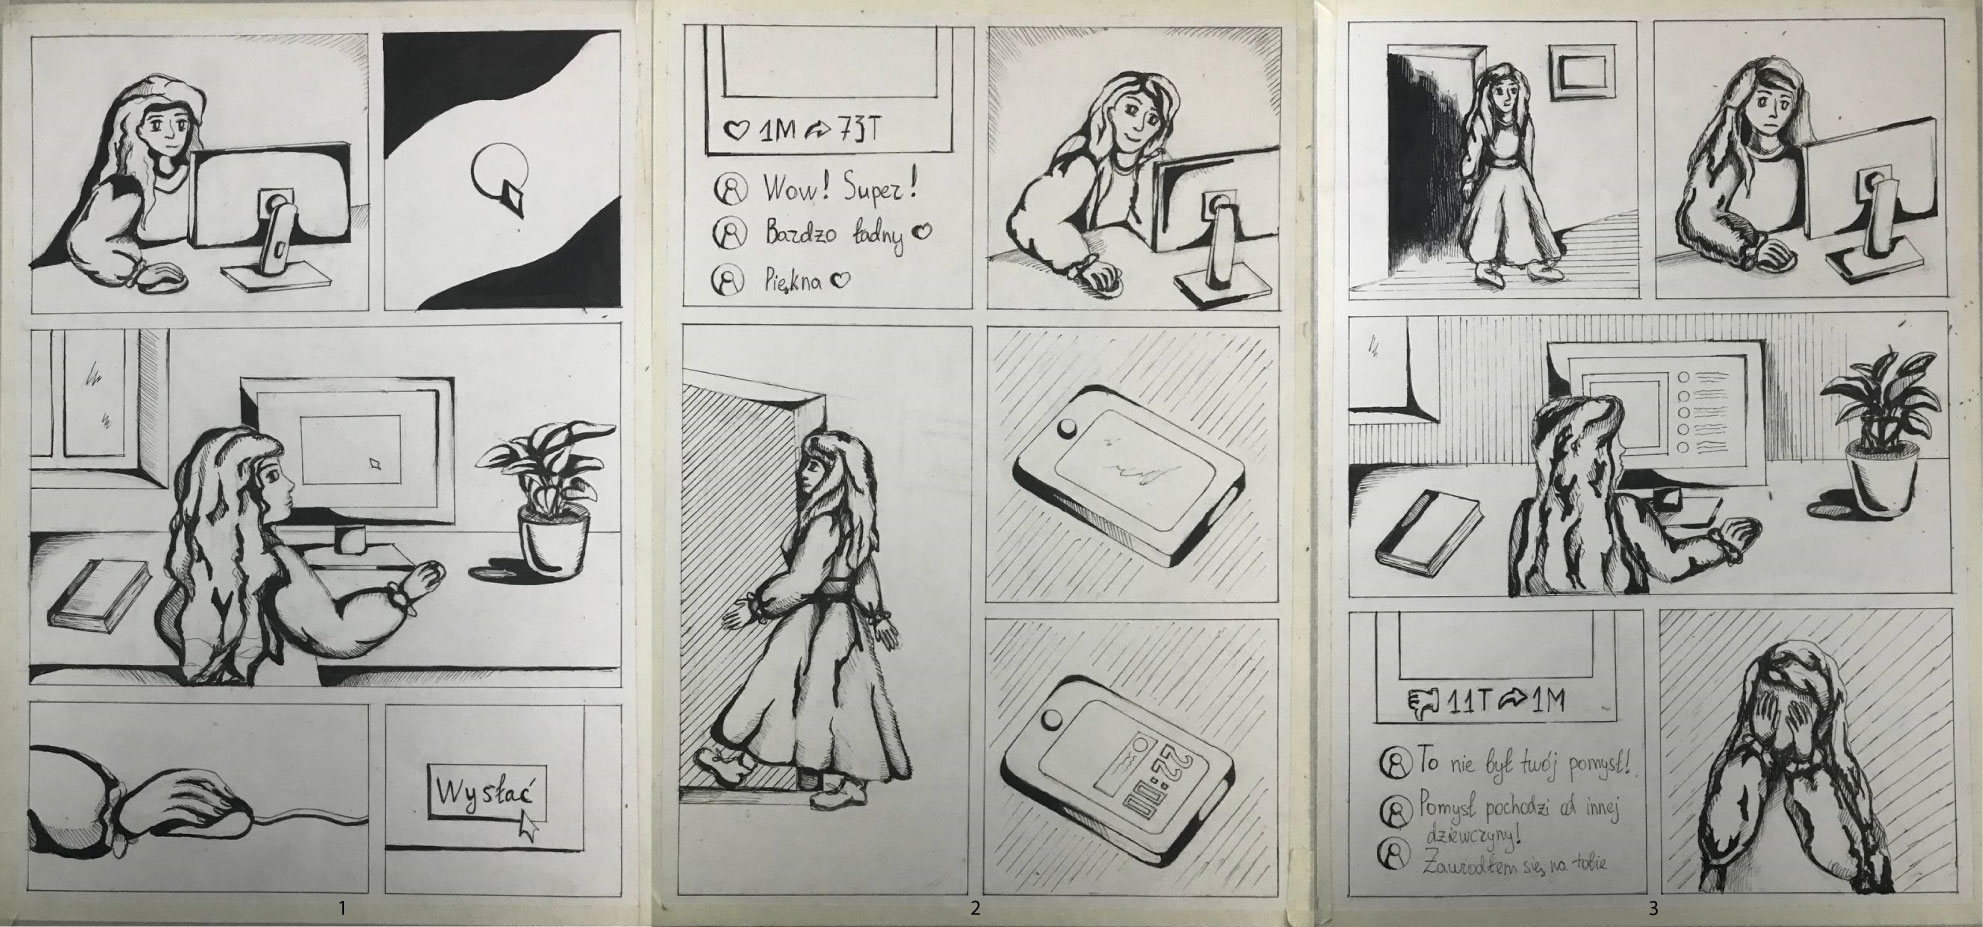 Wysłać
♡ 1M 73T
Wow! Super!
Bardzo ładny ♡
Piękna ♡
22:00
11T 1M
To nie był twój pomysł!
Pomysł pochodzi od innej
dziewczyny!
Zawiodłem się na tobie
1
2
3